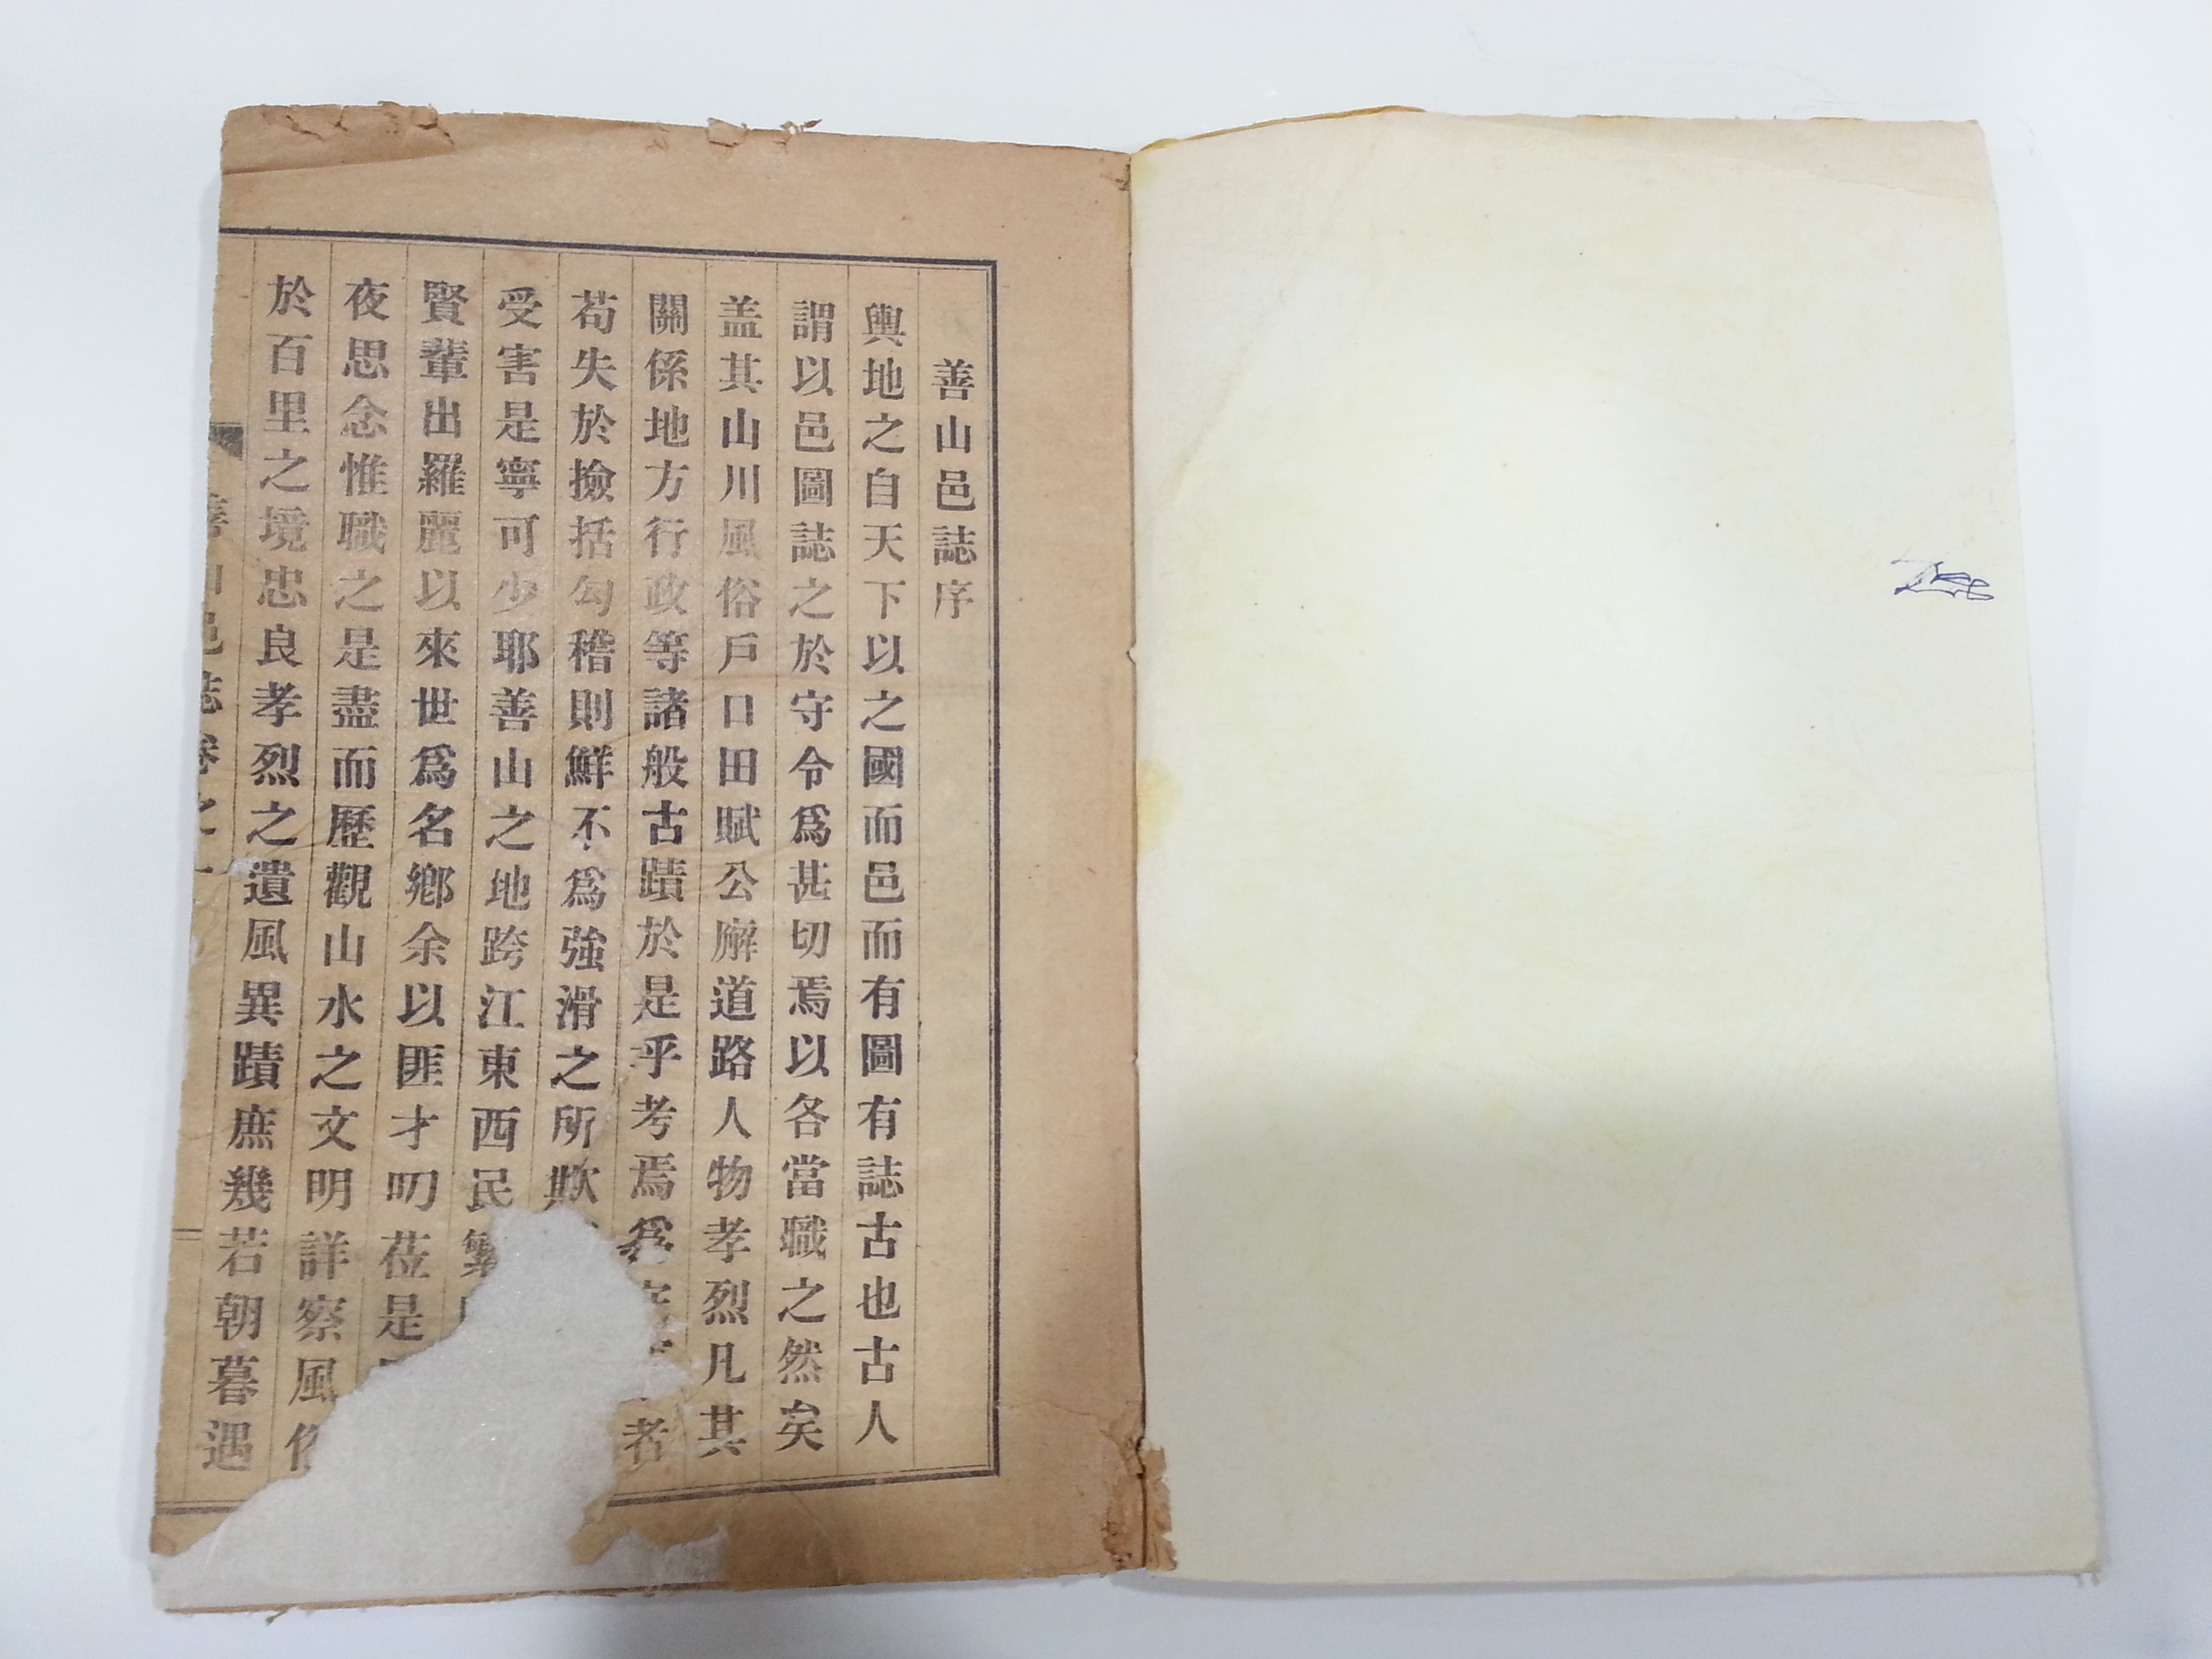 善山邑誌序
輿地之自天下以之國而邑而有圖有誌古也古人
謂以邑圖誌之於守令爲甚切焉以各當職之然矣
盖其山川風俗戶口田賦公廨道路人物孝烈凡其
關係地方行政等諸般古蹟於是乎考焉爲者
苟失於撿括勾稽則鮮不爲強滑之所欺
受害是寧可少耶善山之地跨江東西民繁
賢輩出羅麗以來世爲名鄕余以匪才叨莅是
夜思念惟職之是盡而歷觀山水之文明詳察風俗
於百里之境忠良孝烈之遺風異蹟庶幾若朝暮遇
善山邑誌卷之一